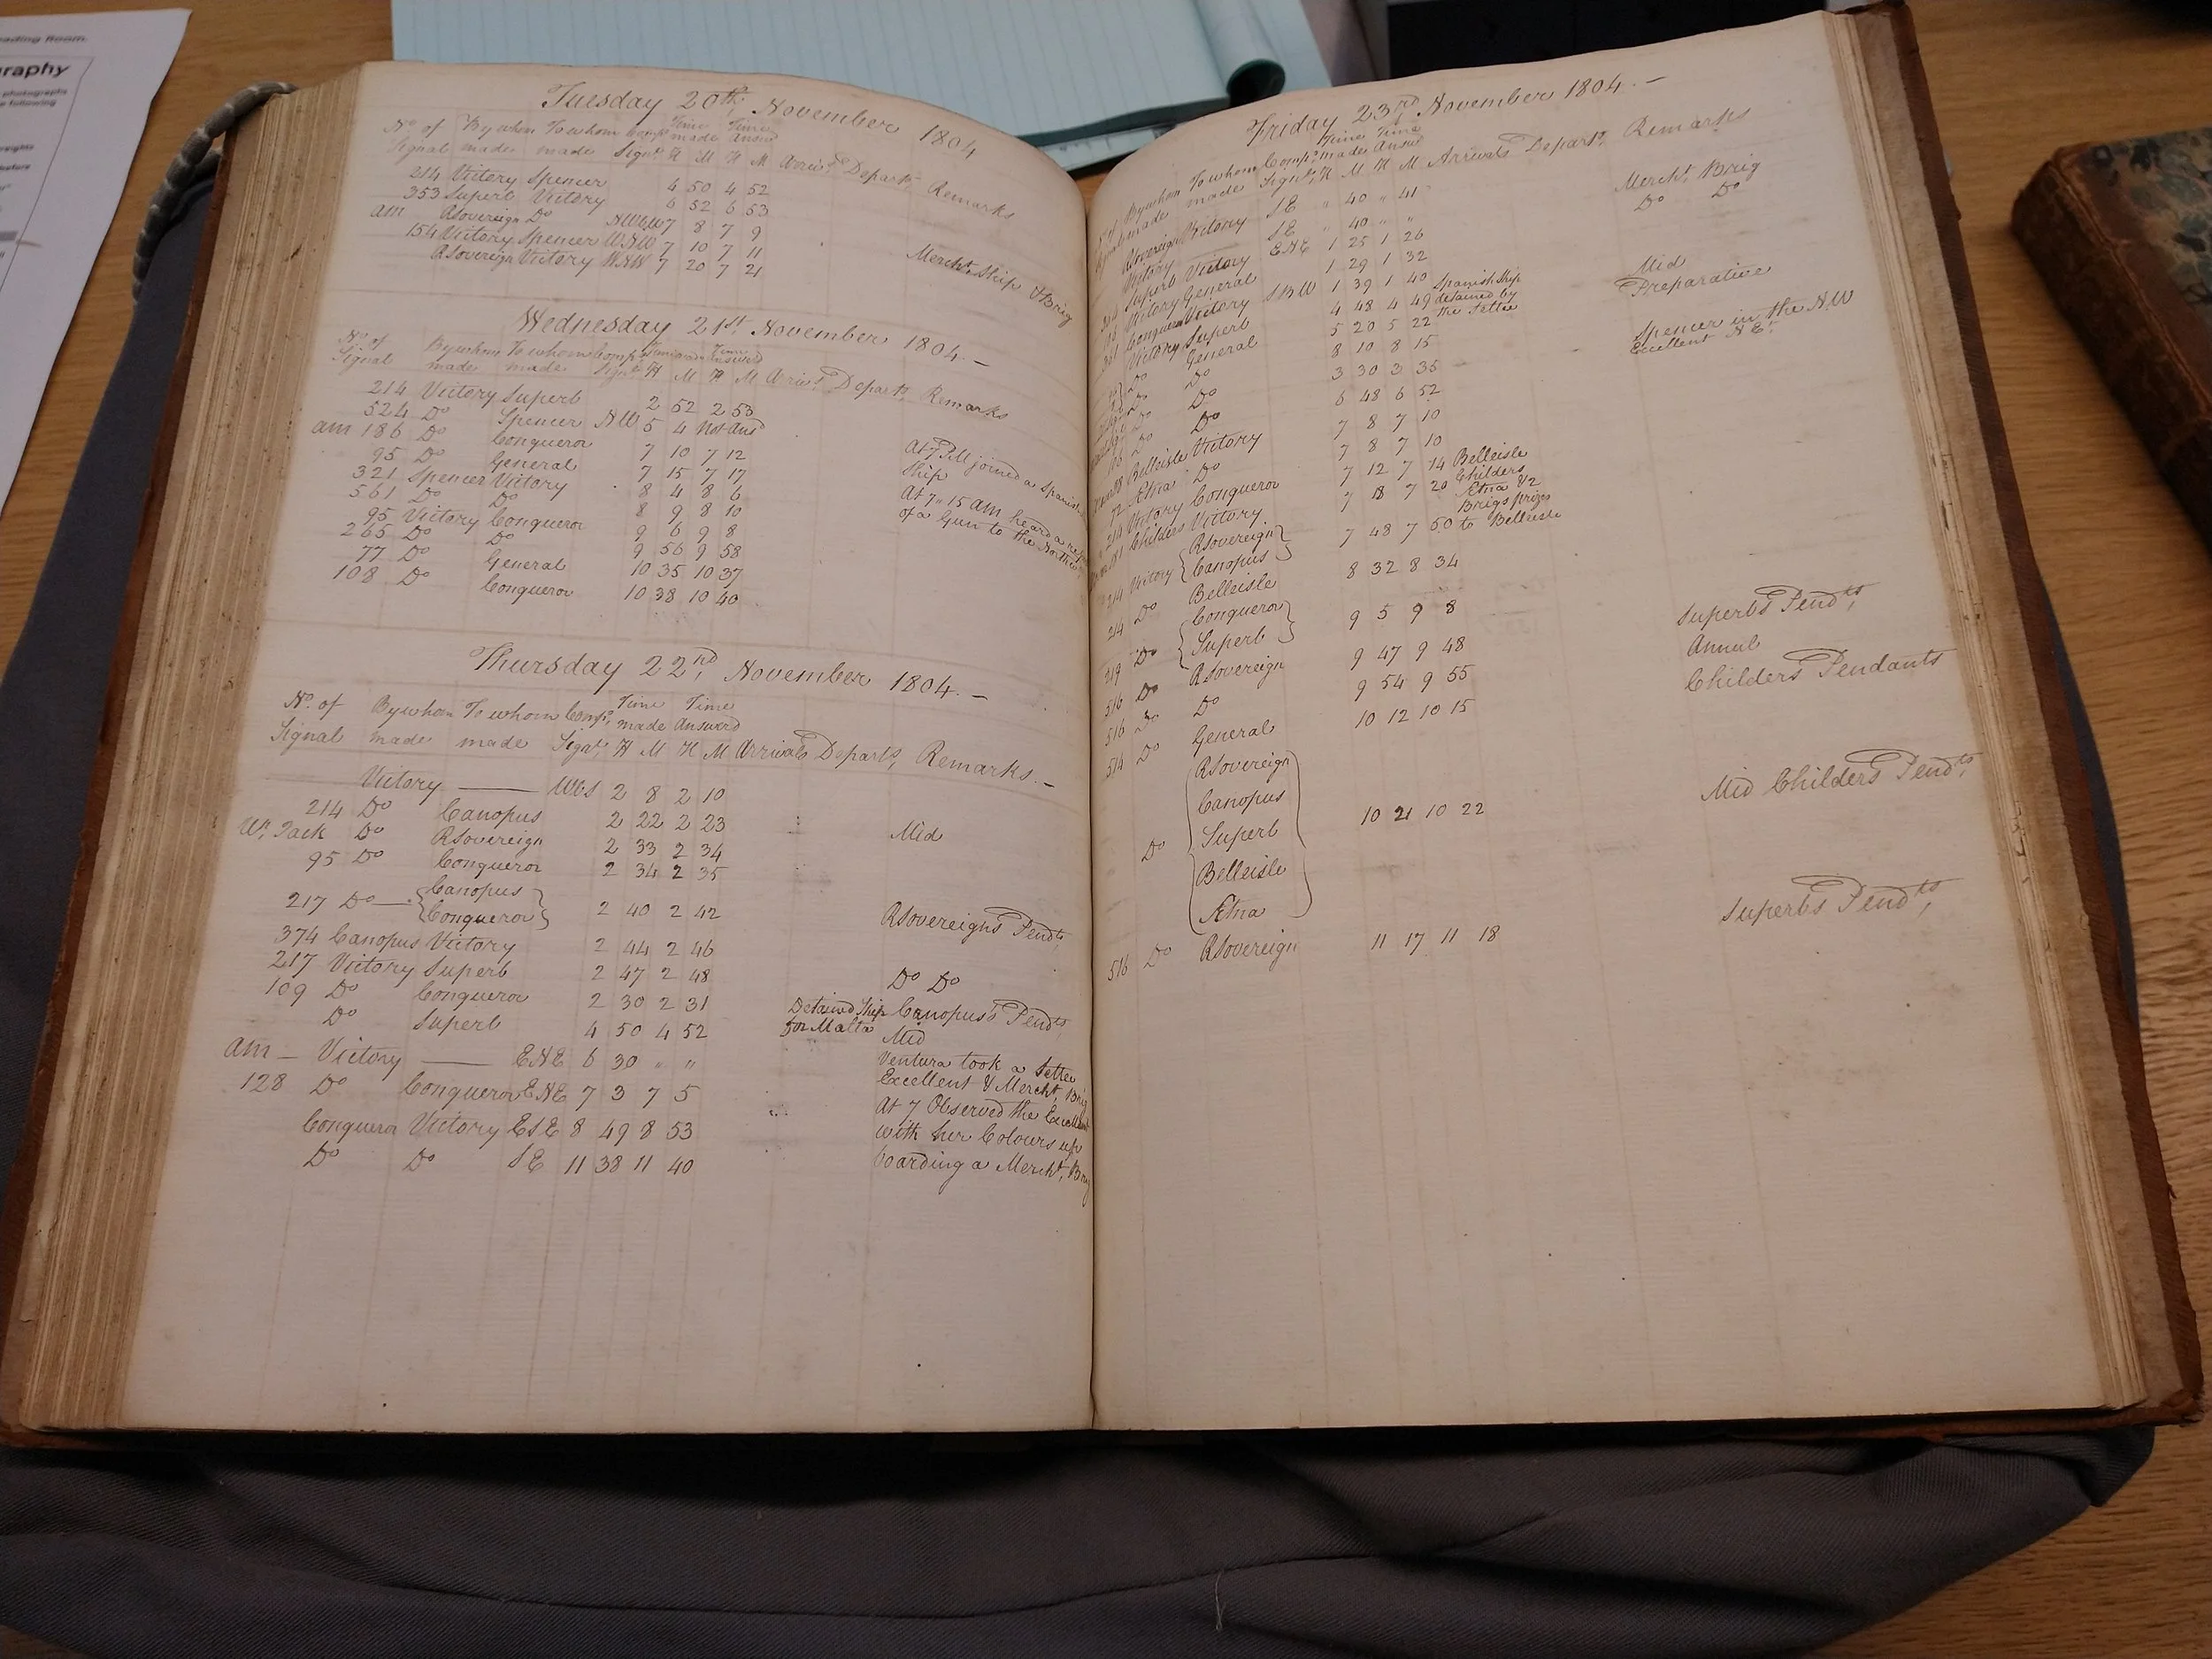 ading Room
raphy
photographs
following
Tuesday 20th November 1804
No. of By whom To whom Comps Time Time
Signal made made Signl made Answd H M H M Arrivs Depart, Remarks
214 Victory Spencer 4 50 4 52
353 Superb Victory 6 52 6 53
am RSovereign Do NWbW 7 8 7 9
154 Victory Spencer WNW 7 10 7 11
RSovereign Victory WNW 7 20 7 21 Mercht Ship & Brig
Wednesday 21st November 1804. —
No. of
Signal By whom made To whom made Comps Signl Time made Time Answered H M H M Arrivs Depart, Remarks
214 Victory Superb 2 52 2 53
524 Do Spencer NW 5 4 Not Ansd
am 186 Do Conqueror 7 10 7 12 At 7 PM joined a Spanish
95 Do General 7 15 7 17 Ship
321 Spencer Victory 8 4 8 6 At 7,, 15 am heard a
561 Do Do 8 9 8 10 of a Gun to the
95 Victory Conqueror 9 6 9 8
265 Do Do 9 56 9 58
77 Do General 10 35 10 37
108 Do Conqueror 10 38 10 40
Thursday 22nd, November 1804. —
No. of By whom To whom Comps, Time Time
Signal made made Signl, made Answerd H M H M Arrivals Depart, Remarks. —
Victory —— WbS 2 8 2 10
214 Do Canopus 2 22 2 23
Wr. Tack Do RSovereign 2 33 2 34 Mid
95 Do Conqueror 2 34 2 35
217 Do — { Canopus
Conqueror } 2 40 2 42 RSovereigns Pendts,
374 Canopus Victory 2 44 2 46
217 Victory Superb 2 47 2 48 Do Do
109 Do Conqueror 2 30 2 31 Detained Ship Canopus's Pendts,
Do Superb 4 50 4 52 for Malta Mid
am — Victory —— ENE 6 30 " " Ventura took a Settee
128 Do Conqueror ENE 7 3 7 5 Excellent & Mercht, Brig
At 7 Observed the Excellent
Conqueror Victory ESE 8 49 8 53 with her Colours up
Do Do SE 11 38 11 40 boarding a Mercht, Brig
Friday 23rd November 1804. —
No. of By whom To whom Comps, Time Time
made made Signl, made Answd H M H M Arrivals Depart, Remarks
RSovereign Victory SE " 40 " 41 Mercht, Brig
Victory —— SE " 40 " " Do Do
Superb Victory ENE 1 25 1 26
Victory General 1 29 1 32 Mid
Conqueror Victory SBW 1 39 1 40 Spanish Ship Preparative
Victory Superb 4 48 4 49 detained by
Do General 5 20 5 22 the Settee Spencer in the NW
Do Do 8 10 8 15 Excellent NE,
Do Do 3 30 3 35
Do Do 6 48 6 52
Belleisle Victory 7 8 7 10
Ætna Do 7 8 7 10
214 Victory Conqueror 7 12 7 14 Belleisle
Childers Victory 7 18 7 20 Childers
Ætna & 2
Brigs prizes
214 Victory { RSovereign
Canopus } 7 48 7 50 to Belleisle
214 Do Belleisle 8 32 8 34
219 Do { Conqueror
Superb } 9 5 9 8 Superbs Pendts,
516 Do RSovereign 9 47 9 48 Annul
516 Do Do 9 54 9 55 Childers Pendants
514 Do General 10 12 10 15
RSovereign
Canopus
Do Superb 10 21 10 22 Mid Childers Pendts,
Belleisle
Ætna
516 Do RSovereign 11 17 11 18 Superbs Pendts,